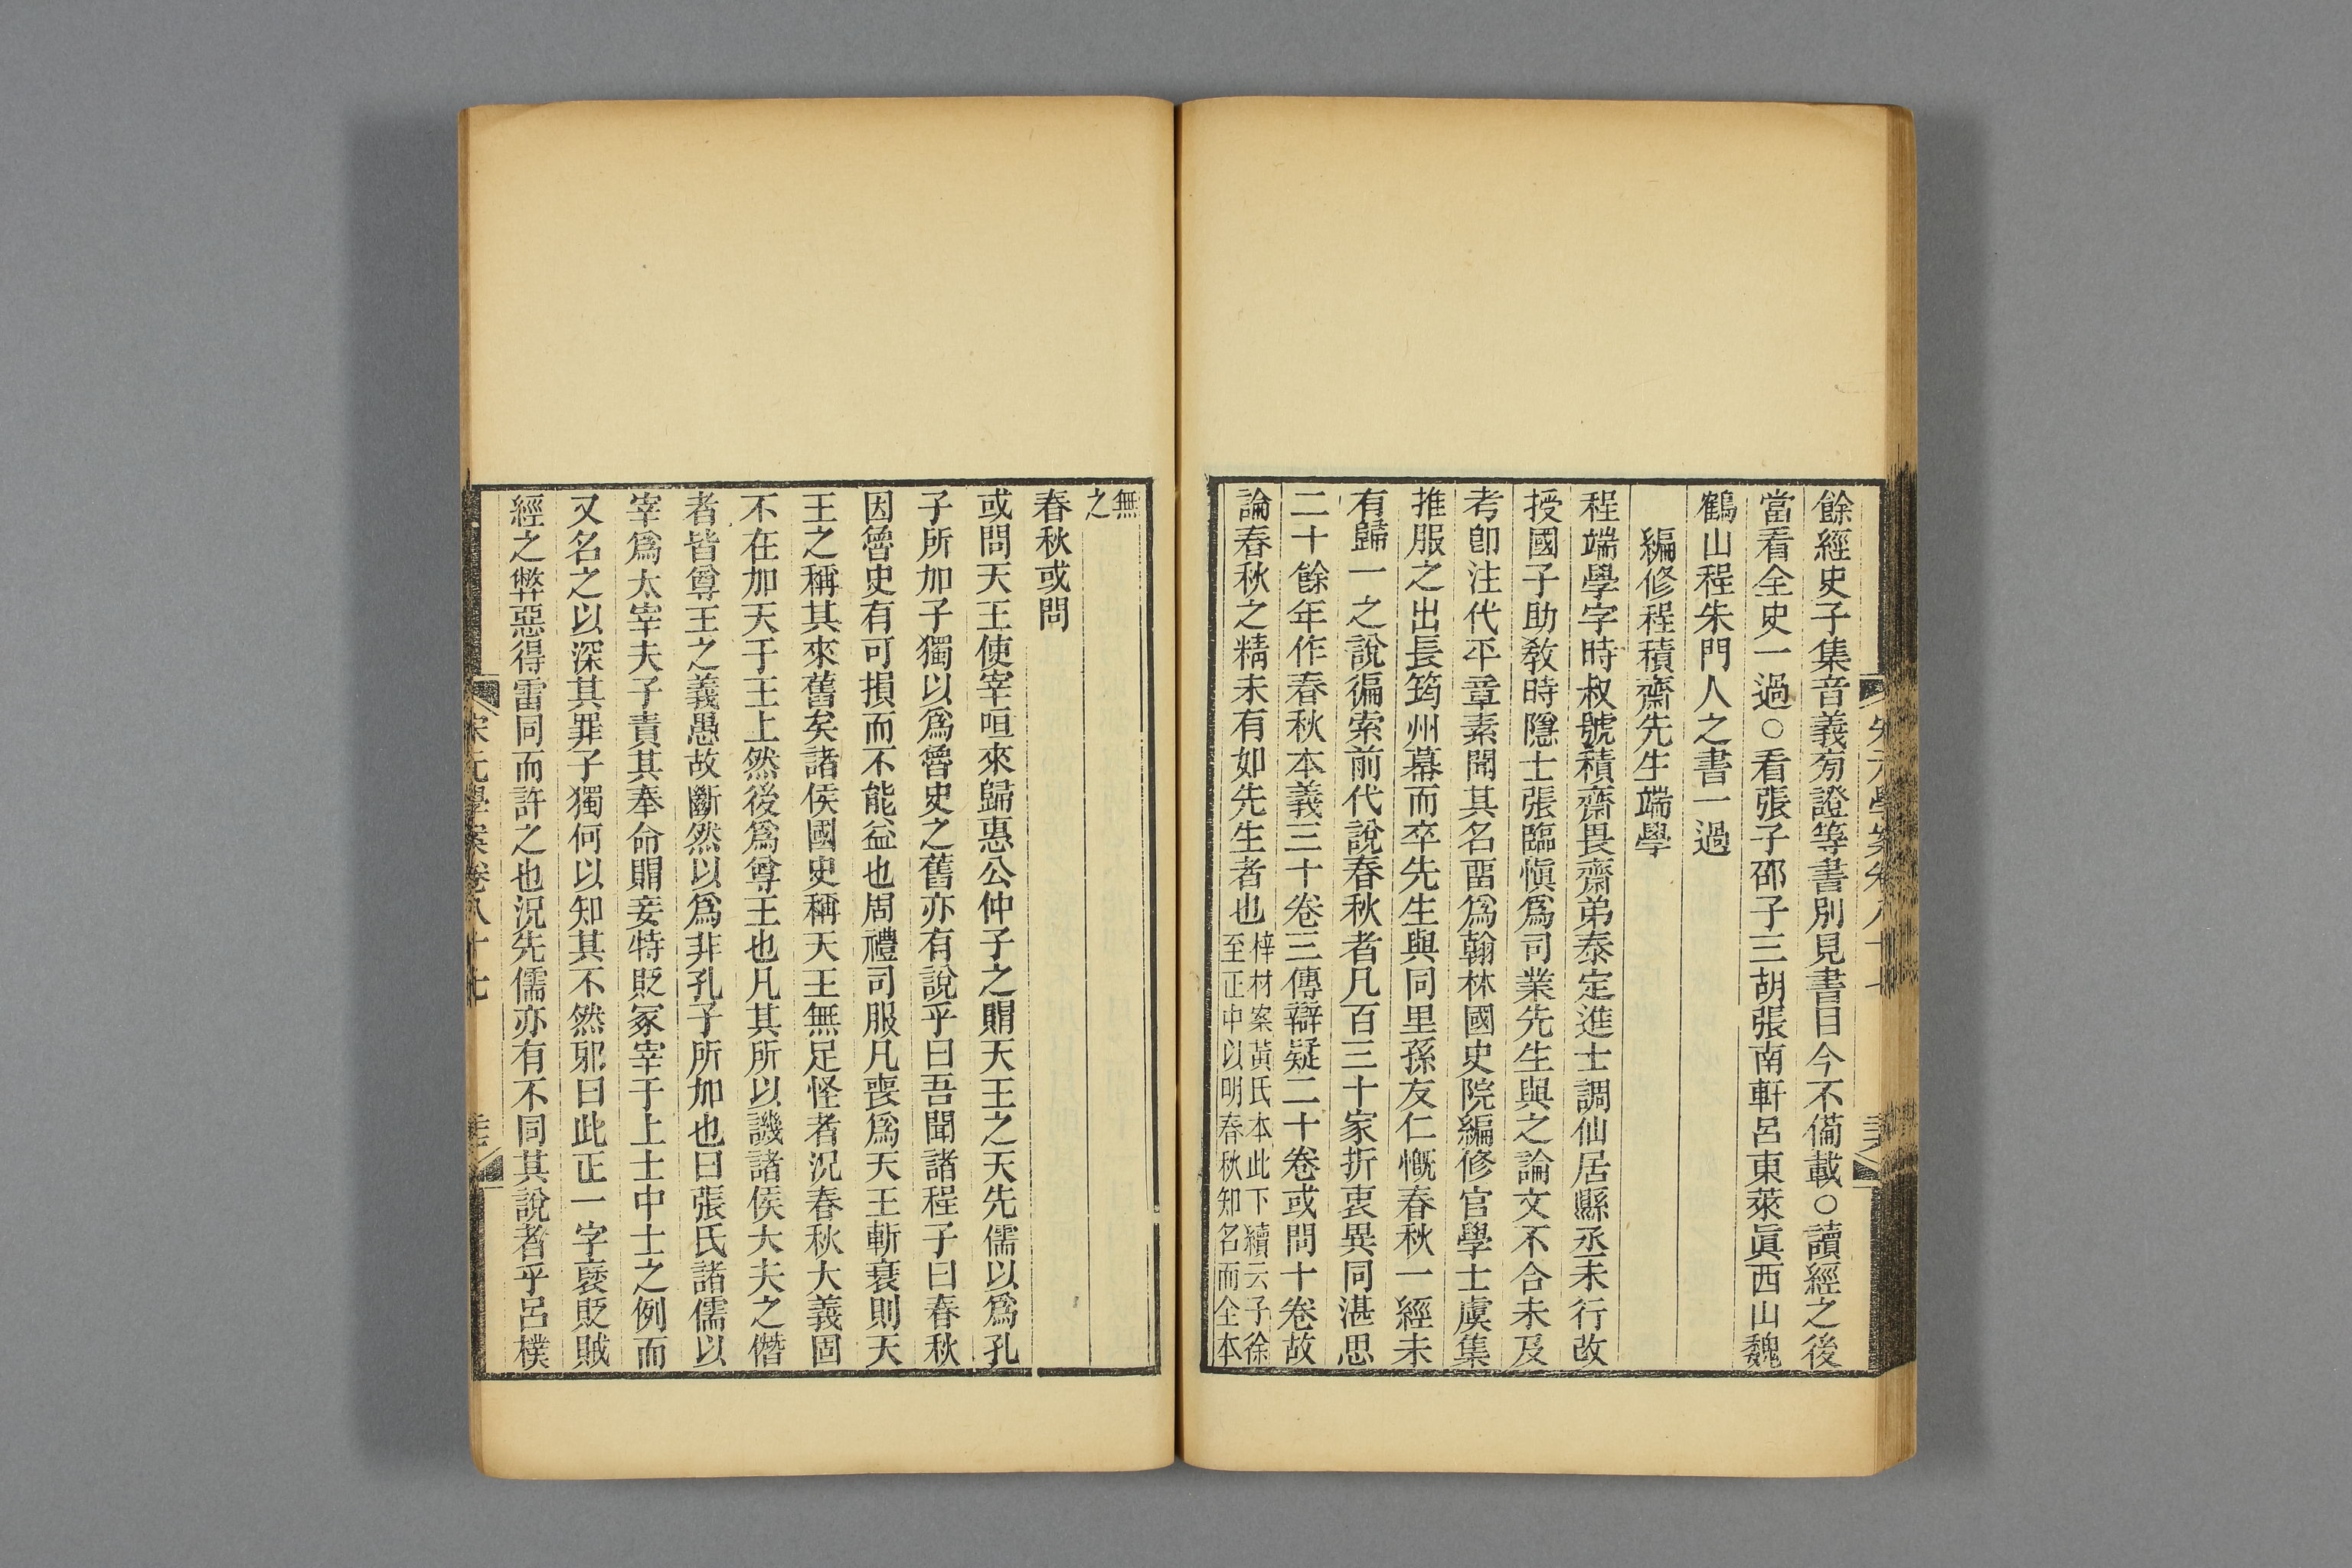 餘經史子集音義夯證等書別見書目今不備載○讀經之後
當看全史一過○看張子邵子三胡張南軒呂東萊眞西山魏
鶴山程朱門人之書一過
編修程積齋先生端學
程端學字時叔號積齋畏齋弟泰定進士調仙居縣丞未行改
授國子助敎時隱士張臨愼爲司業先生與之論文不合未及
考卽注代平章素聞其名畱爲翰林國史院編修官學士虞集
推服之出長筠州幕而卒先生與同里孫友仁慨春秋一經未
有歸一之說徧索前代說春秋者凡百三十家折衷異同湛思
二十餘年作春秋本義三十卷三傳辯疑二十卷或問十卷故
論春秋之精未有如先生者也
梓材案黃氏本此下續云子徐
至正中以明春秋知名而全本
無
之
春秋或問
或問天王使宰咺來歸惠公仲子之賵天王之天先儒以爲孔
子所加子獨以爲魯史之舊亦有說乎曰吾聞諸程子曰春秋
因魯史有可損而不能益也周禮司服凡喪爲天王斬衰則天
王之稱其來舊矣諸侯國史稱天王無足怪者況春秋大義固
不在加天于王上然後爲尊王也凡其所以譏諸侯大夫之僭
者皆尊王之義愚故斷然以爲非孔子所加也曰張氏諸儒以
宰爲太宰夫子責其奉命賵妾特貶冢宰于上士中士之例而
又名之以深其罪子獨何以知其不然邪曰此正一字褒貶賊
經之弊惡得雷同而許之也況先儒亦有不同其說者乎呂樸
宋元學案卷八十七